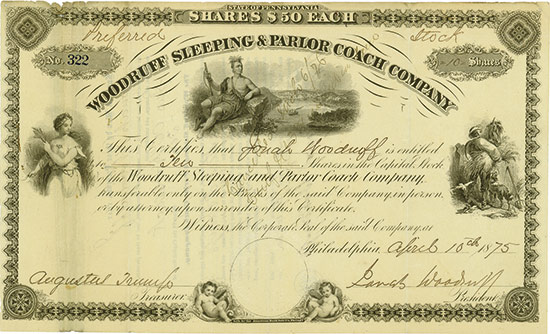 STATE OF PENNSYLVANIA
SHARES $50 EACH
Preferred Stock
No. 322
10 Shares
WOODRUFF SLEEPING & PARLOR COACH COMPANY
This Certifies, that Jonah Woodruff is entitled
to Ten Shares in the Capital Stock
of the Woodruff Sleeping and Parlor Coach Company,
transferable only on the books of the said Company, in person,
or by attorney, upon surrender of this Certificate.
Witness, the Corporate Seal of the said Company, at
Philadelphia, April 15th 1875
Augustus Trump Jonah Woodruff
Treasurer. President.